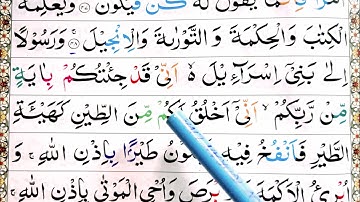 يَقُوۡلُ لَهٗ كُنۡ فَيَكُوۡنُ ﴿۴۷﴾ وَيُعَلِّمُهُ
الۡكِتٰبَ وَالۡحِكۡمَةَ وَالتَّوۡرٰٮةَ وَالۡاِنۡجِيۡلَ ﴿ۚ۴۸﴾ وَرَسُوۡلًا
اِلٰى بَنِىۡۤ اِسۡرَآءِيۡلَ ۙ اَنِّىۡ قَدۡ جِئۡتُكُمۡ بِاٰيَةٍ
مِّنۡ رَّبِّكُمۡ ۙ اَنِّىۡۤ اَخۡلُقُ مِّنَ الطِّيۡنِ كَهَيۡـَٔـةِ
الطَّيۡرِ فَاَنۡفُخُ فِيۡهِ طَيۡرًۢا بِاِذۡنِ اللّٰهِ‌ ۚ وَ
اُبۡرِئُ الۡاَكۡمَهَ وَاُحۡىِ الۡمَوۡتٰى بِاِذۡنِ اللّٰهِ‌ ۚ